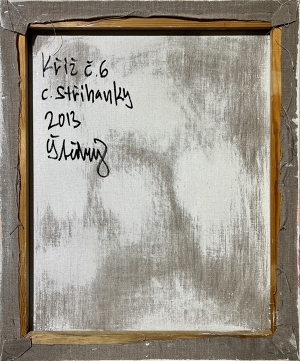 Kříž č.6
c. stříhanky
2013